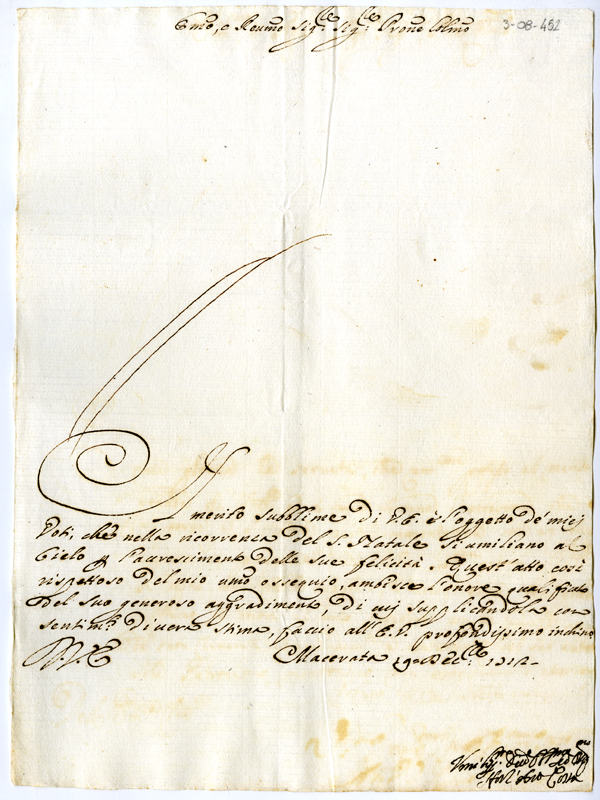 Emo, e Reumo Sig.r Sig.r Prone Colmo
3-08-452
Il merito subblime di V.E. è l'oggetto de' miej
Voti, che nella ricorrenza del S. Natale si umiliano al
Cielo p l'accrescimento delle Sue felicità. Quest'atto così
rispettoso del mio umo ossequio, ambisce l'onore qualificato
del Suo generoso aggradimento, di cuj supplicandola con
sentim.ti di vera stima, faccio all'E.V. profondissimo inchino
D.V.E. Macerata Dec.